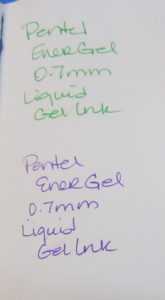 Pentel
EnerGel
0.7mm
Liquid
Gel Ink
Pentel
EnerGel
0.7mm
Liquid
Gel Ink